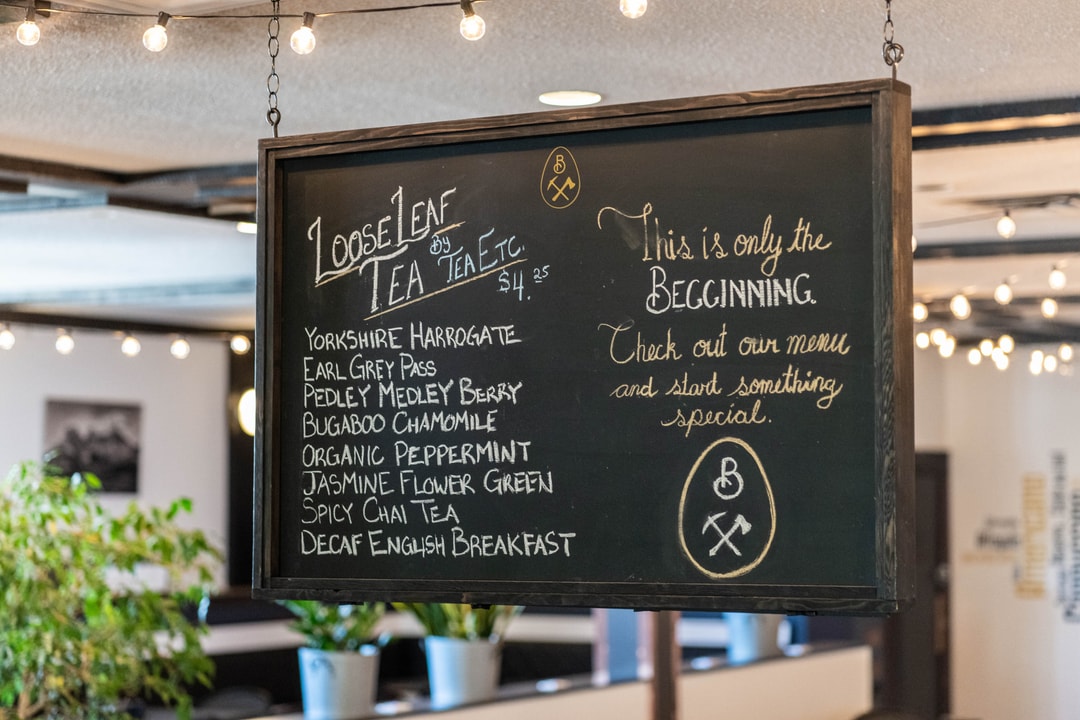 B
LOOSE LEAF
TEA BY TEA ETC.
$4.25
YORKSHIRE HARROGATE
EARL GREY PASS
PEDLEY MEDLEY BERRY
BUGABOO CHAMOMILE
ORGANIC PEPPERMINT
JASMINE FLOWER GREEN
SPICY CHAI TEA
DECAF ENGLISH BREAKFAST
This is only the
BEGINNING.
Check out our menu
and start something
special.
B